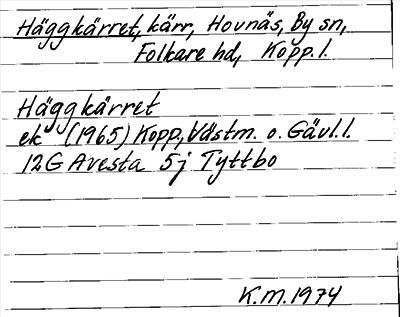 Häggkärret, kärr, Hovnäs, By sn,
Folkare hd, Kopp. l.
Häggkärret
ek (1965) Kopp, Västm. o. Gävl. l.
12G Avesta 5j Tyttbo
K.M. 1974